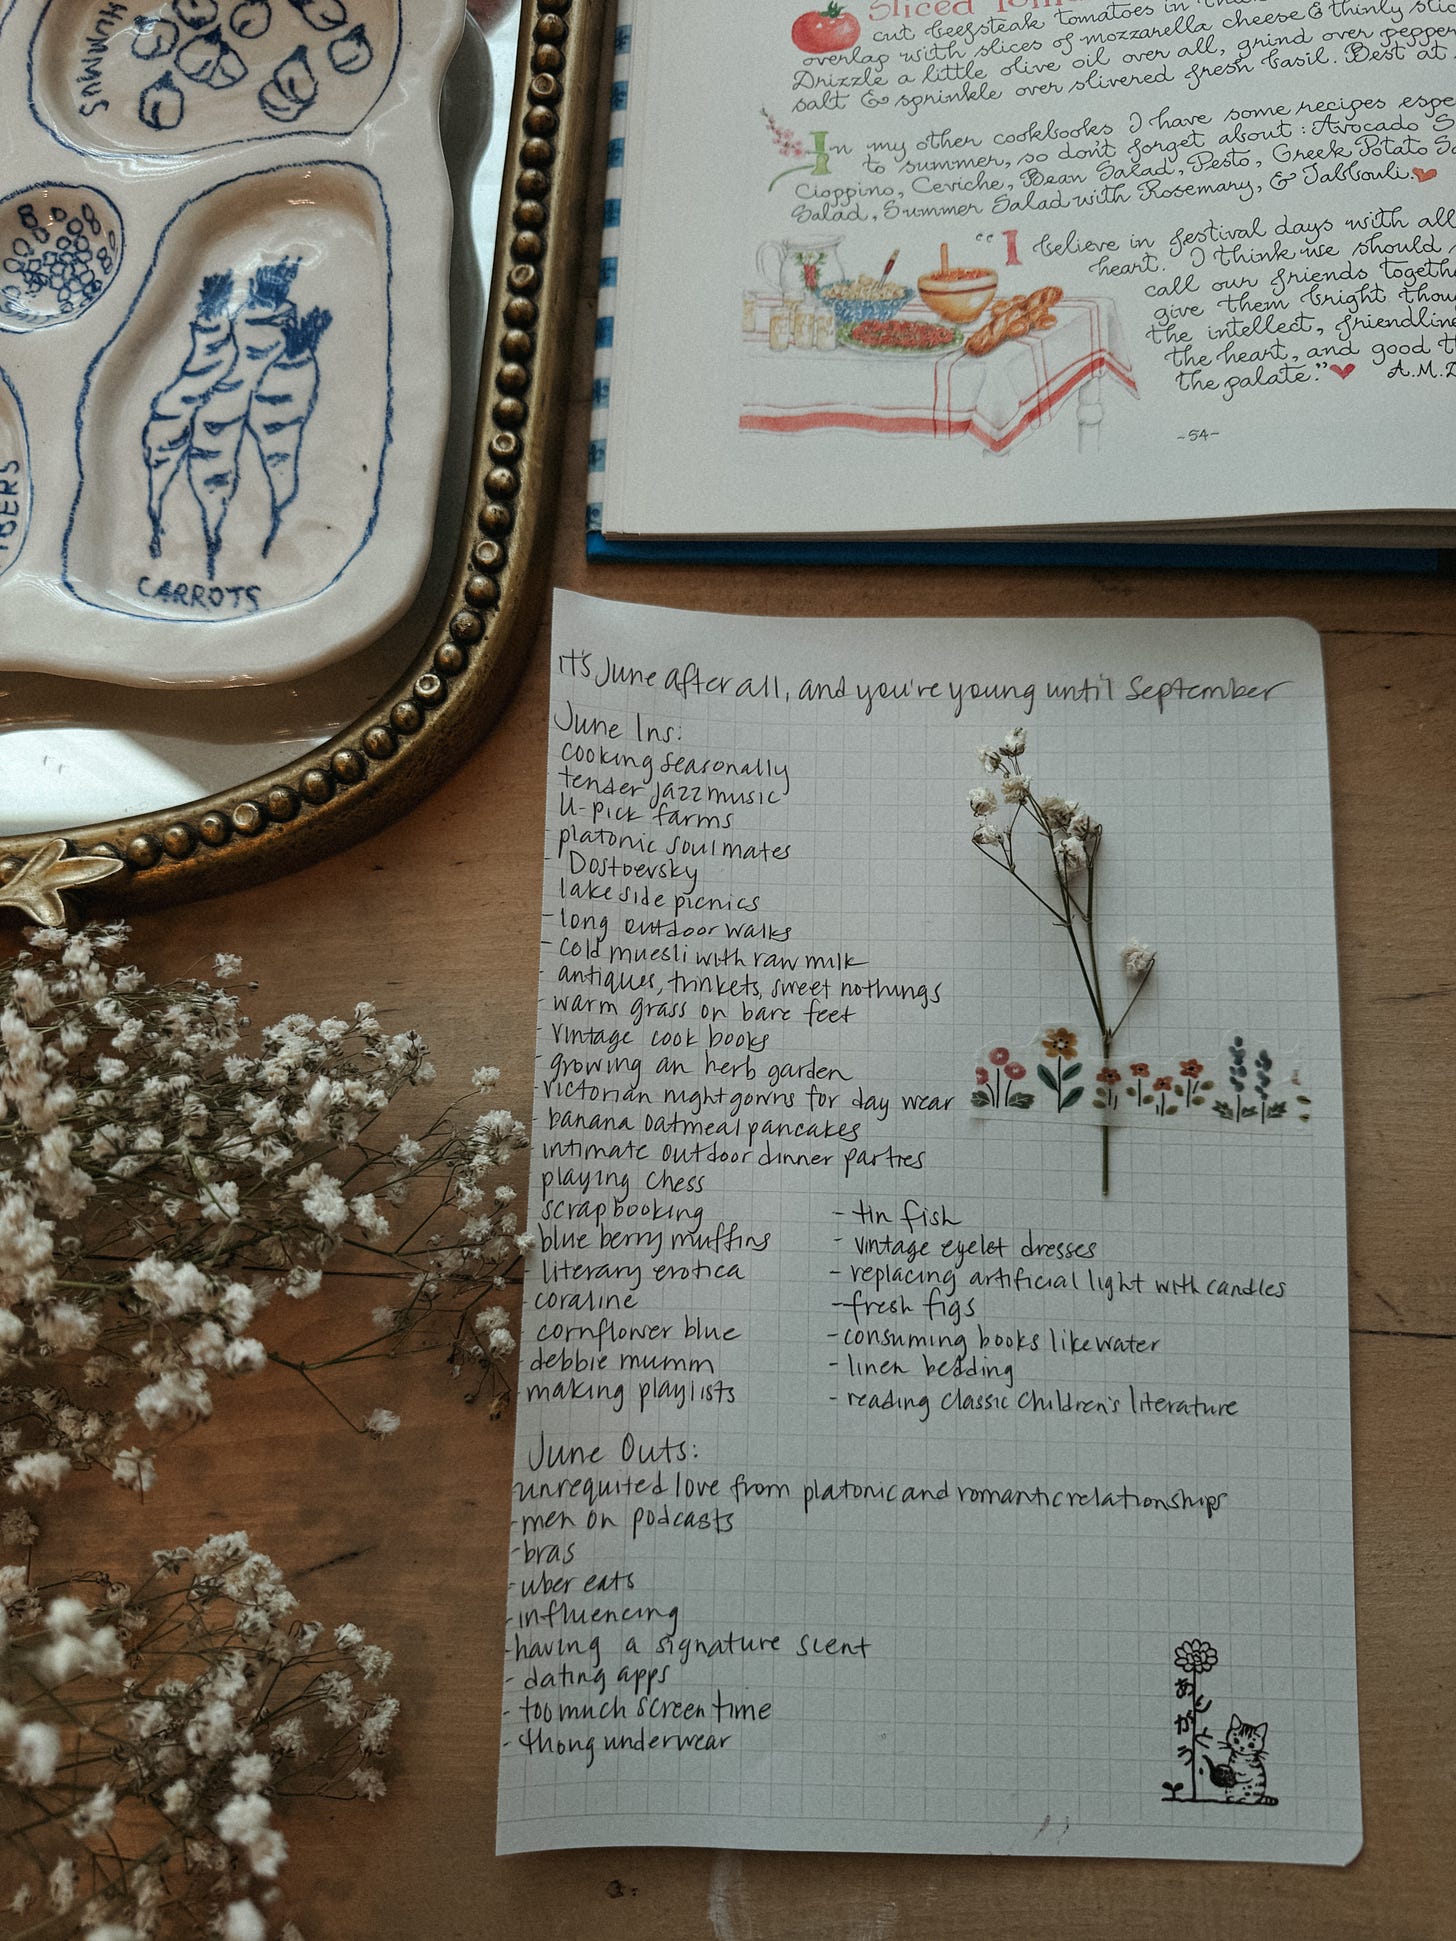 HUMMUS
BERS
CARROTS
Sliced
cut beefsteak tomatoes in
overlap with slices of mozzarella cheese & thinly slic
Drizzle a little olive oil over all, grind over pepper
salt & sprinkle over slivered fresh basil. Best at
In my other cookbooks I have some recipes espe
to summer, so don't forget about: Avocado S
Cioppino, Ceviche, Bean Salad, Pesto, Greek Potato Sa
Salad, Summer Salad with Rosemary, & Tabbouli.
"I believe in festival days with all
heart. I think we should
call our friends togeth
give them bright thou
the intellect, friendlin
the heart, and good t
the palate." A.M.D
-54-
it's June after all, and you're young until September
June Ins:
cooking seasonally
tender jazz music
U-pick farms
platonic soulmates
- Dostoevsky
lake side picnics
- long outdoor walks
- cold muesli with raw milk
- antiques, trinkets, sweet nothings
- warm grass on bare feet
- vintage cook books
- growing an herb garden
- victorian nightgowns for day wear
- banana oatmeal pancakes
- intimate outdoor dinner parties
playing chess
scrapbooking
blue berry muffins
- literary erotica
- coraline
cornflower blue
- debbie mumm
- making playlists
- tin fish
- vintage eyelet dresses
- replacing artificial light with candles
- fresh figs
- consuming books like water
- linen bedding
- reading classic children's literature
June Outs:
-unrequited love from platonic and romantic relationships
-men on podcasts
-bras
-uber eats
-influencing
-having a signature scent
- dating apps
- too much screen time
- thong underwear
ありがとう